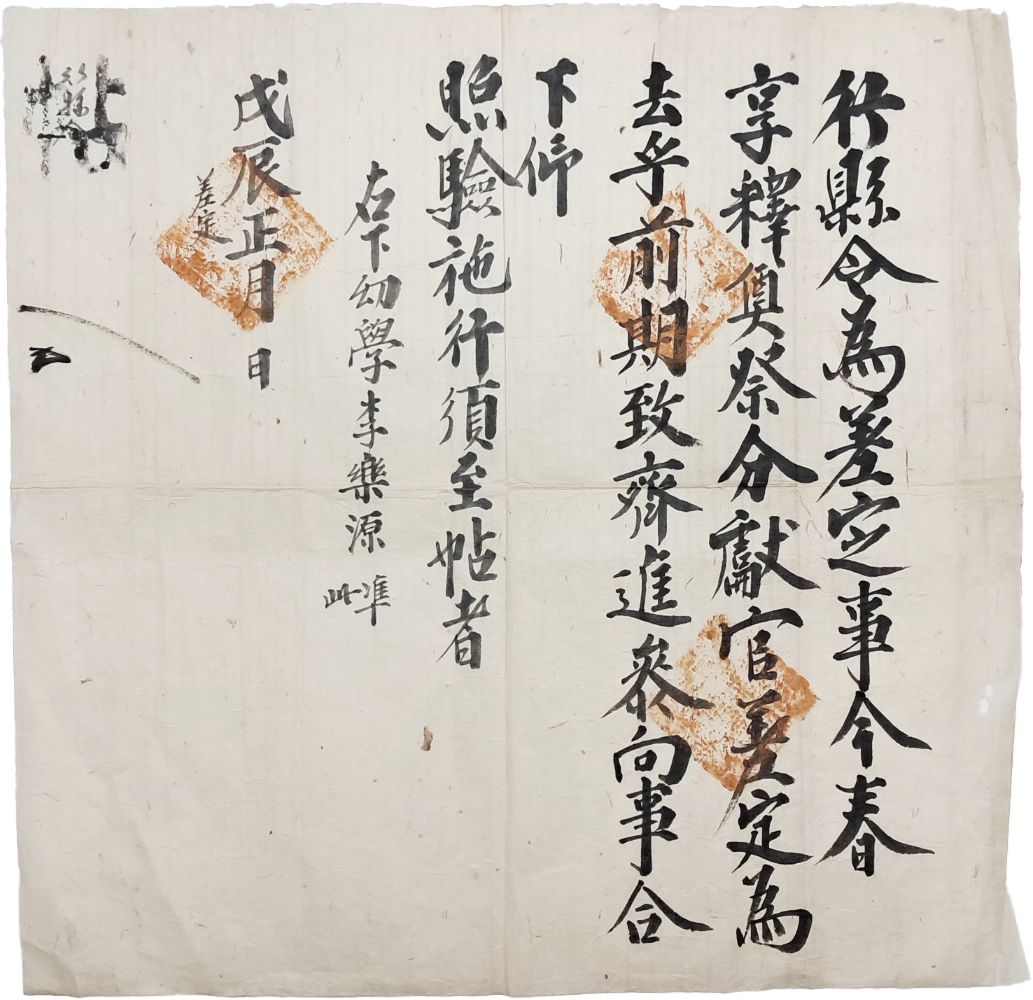 行縣令為差定事今春
享釋奠祭分獻官差定為
去乎前期致齊進叅向事合
下仰
照驗施行須至帖者
右下幼學李樂源 準此
戊辰正月 日
差定